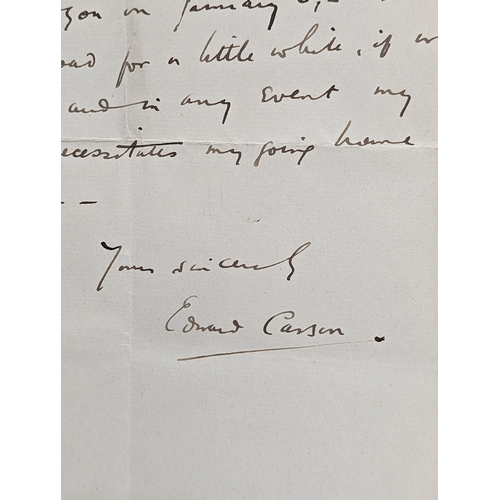 you on January
for a little while, if
and in any event my
necessitates my going home
- -
Yours sincerely
Edward Carson.